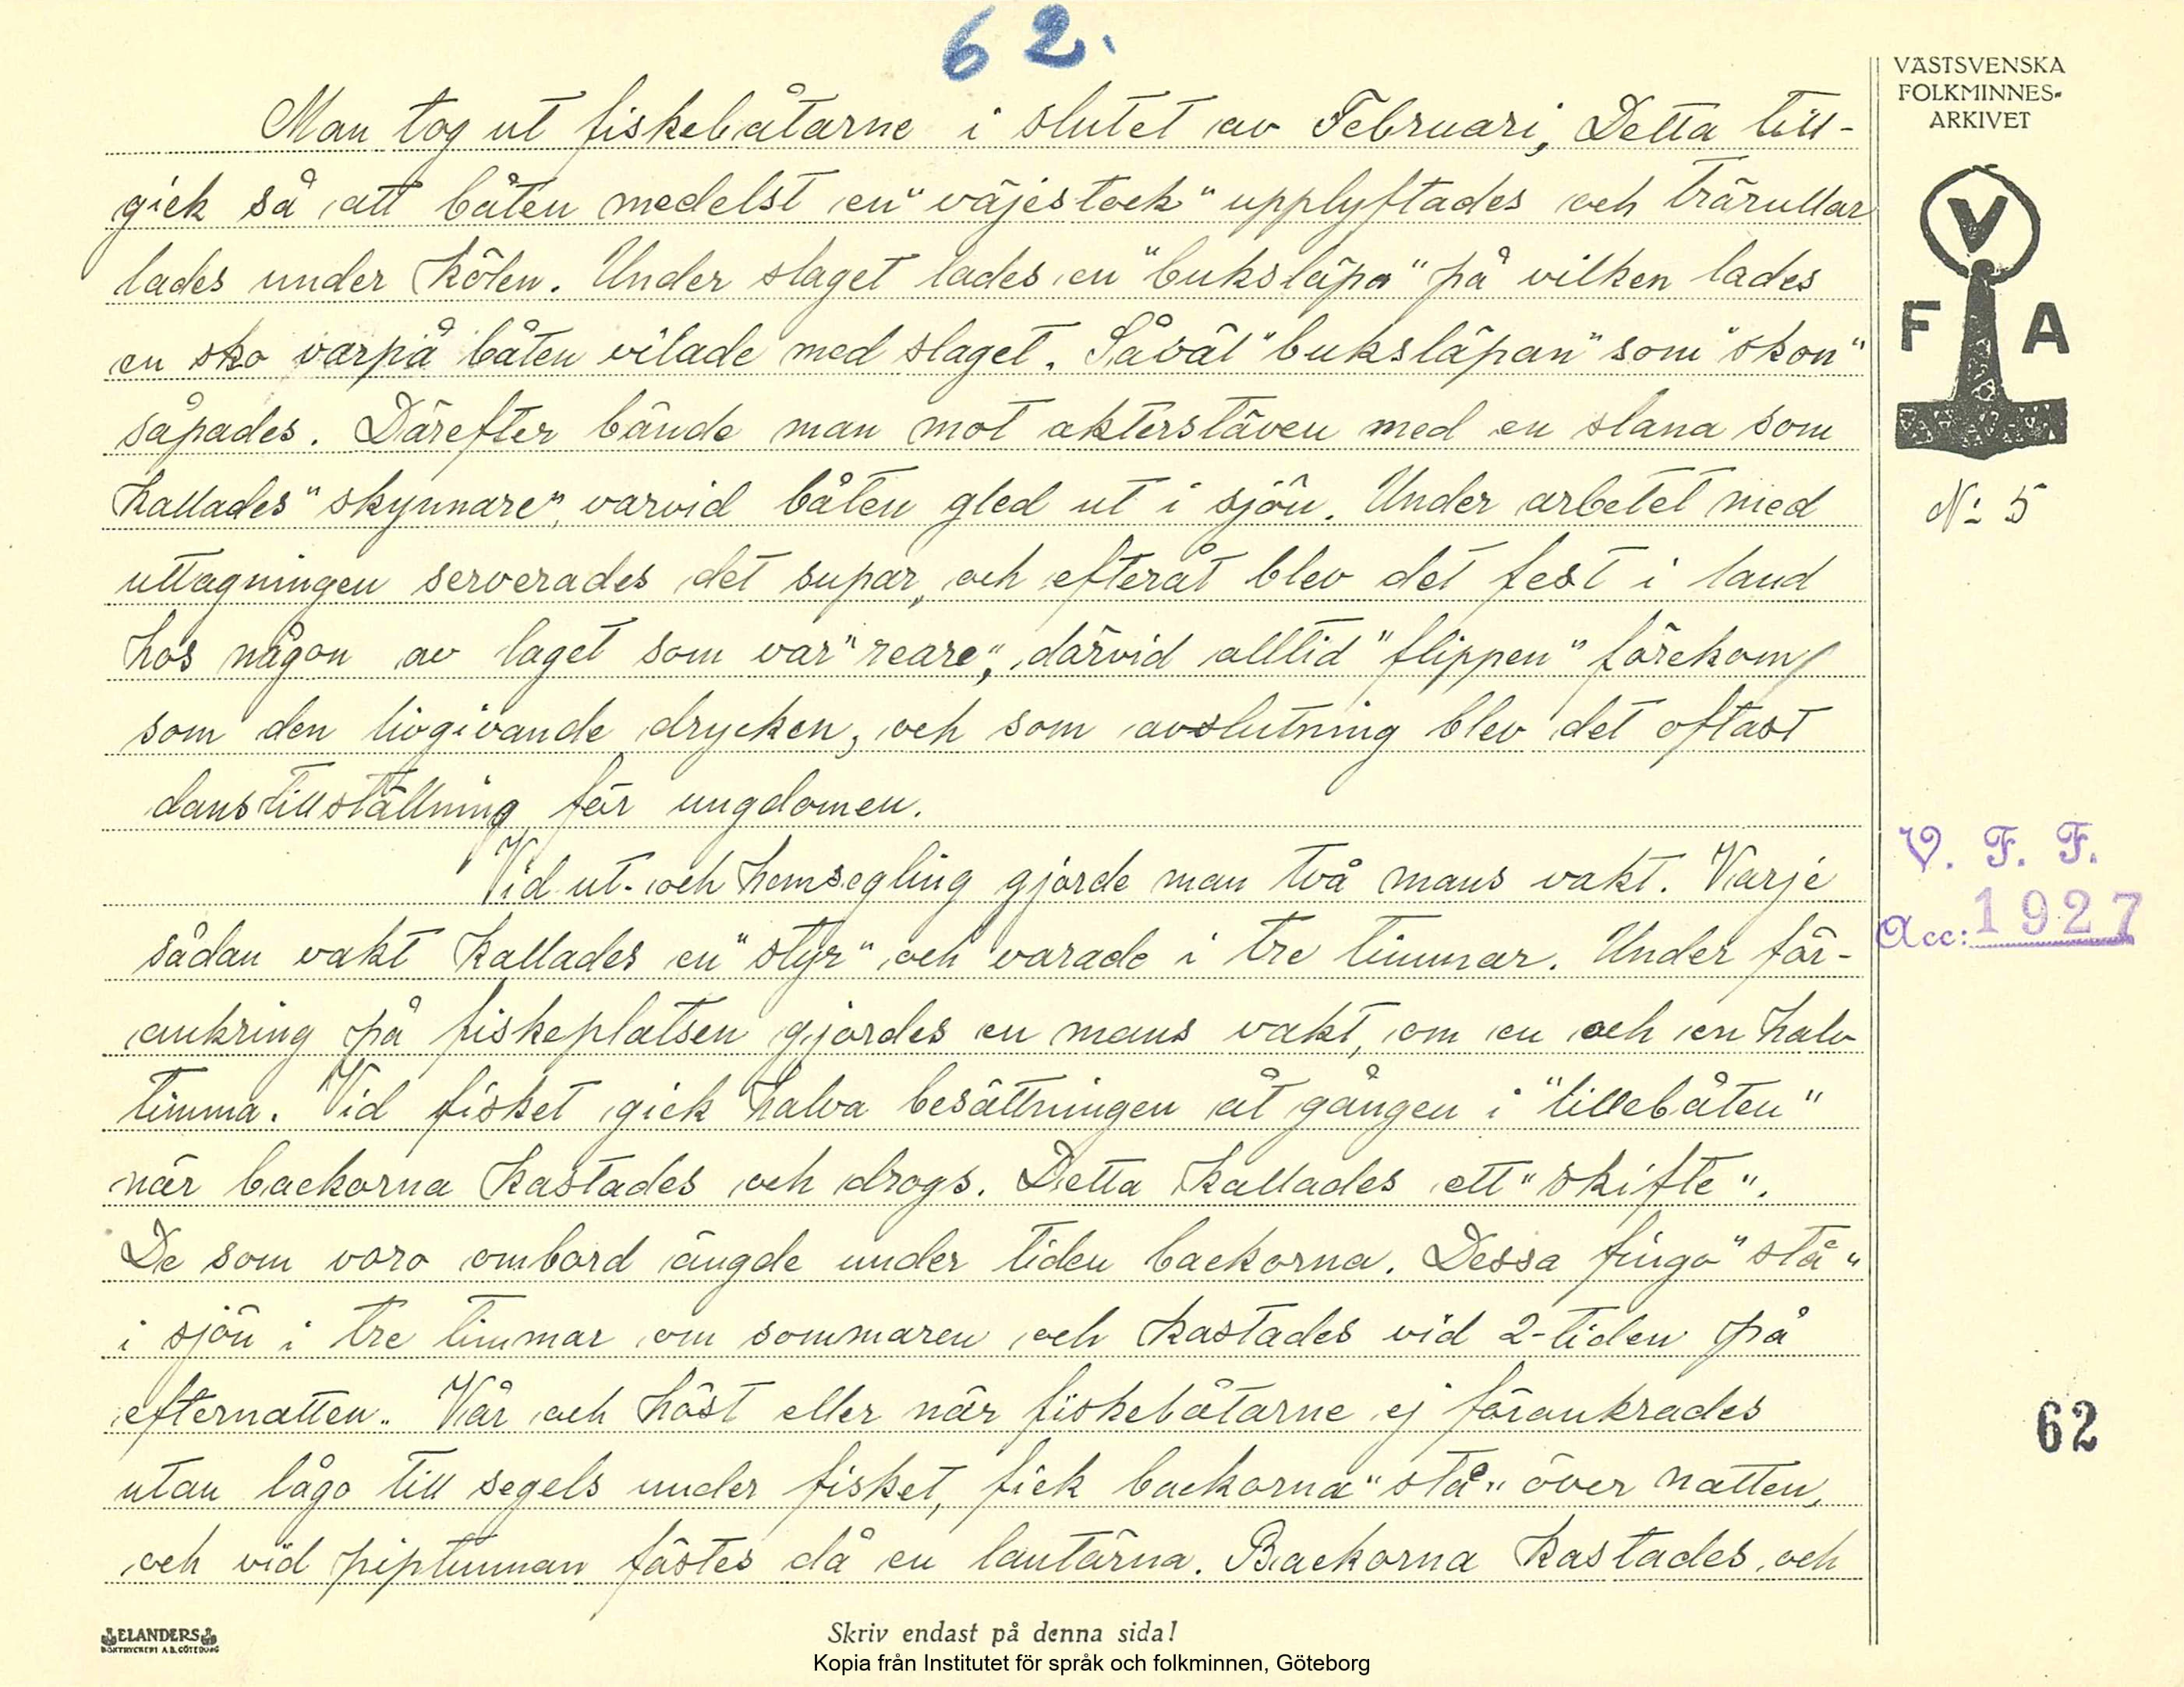 62.
Man tog ut fiskebåtarne i slutet av Februari, Detta till-
gick så att båten medelst en "väjestock" upplyftades och trärullar
lades under kölen. Under slaget lades en "buksläpa" på vilken lades
en sko varpå båten vilade med slaget. Såväl "buksläpan" som "skon"
såpades. Därefter bände man mot akterstäven med en slana som
kallades "skynnare", varvid båten gled ut i sjön. Under arbetet med
uttagningen serverades det supar, och efteråt blev det fest i land
hos någon av laget som var "reare", därvid alltid "flippen" förekom
som den livgivande drycken, och som avslutning blev det oftast
danstillställning för ungdomen.
Vid ut- och hemsegling gjorde man två mans vakt. Varje
sådan vakt kallades en "styr" och varade i tre timmar. Under för-
ankring på fiskeplatsen gjordes en mans vakt, om en och en halv
timma. Vid fisket gick halva besättningen åt gången i "lillebåten"
när backorna kastades och drogs. Detta kallades ett "skifte".
De som voro ombord ängde under tiden backorna. Dessa fingo "stå"
i sjön i tre timmar om sommaren och kastades vid 2-tiden på
efternatten. Vår och höst eller när fiskebåtarne ej förankrades
utan lågo till segels under fisket, fick backorna "stå" över natten,
och vid piptunnan fästes då en lantärna. Backorna kastades och
VÄSTSVENSKA
FOLKMINNES-
ARKIVET
V
F A
No 5
V. F. F.
Acc: 1927
62
ELANDERS
BOKTRYCKERI A.B. GÖTEBORG
Skriv endast på denna sida!
Kopia från Institutet för språk och folkminnen, Göteborg